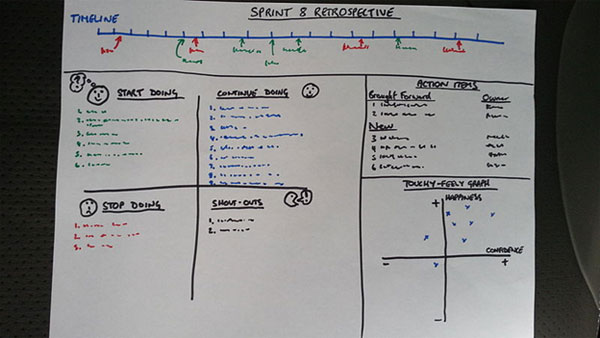 SPRINT 8 RETROSPECTIVE
TIMELINE
START DOING
1.
2.
3.
4.
5.
6.
CONTINUE DOING
1.
2.
3.
4.
5.
6.
7.
8.
9.
STOP DOING
1.
2.
3.
SHOUT-OUTS
1.
2.
ACTION ITEMS
Brought Forward Owner
1
2
New
3
4
5
6
TOUCHY-FEELY GRAPH
+ HAPPINESS
CONFIDENCE
- +
-